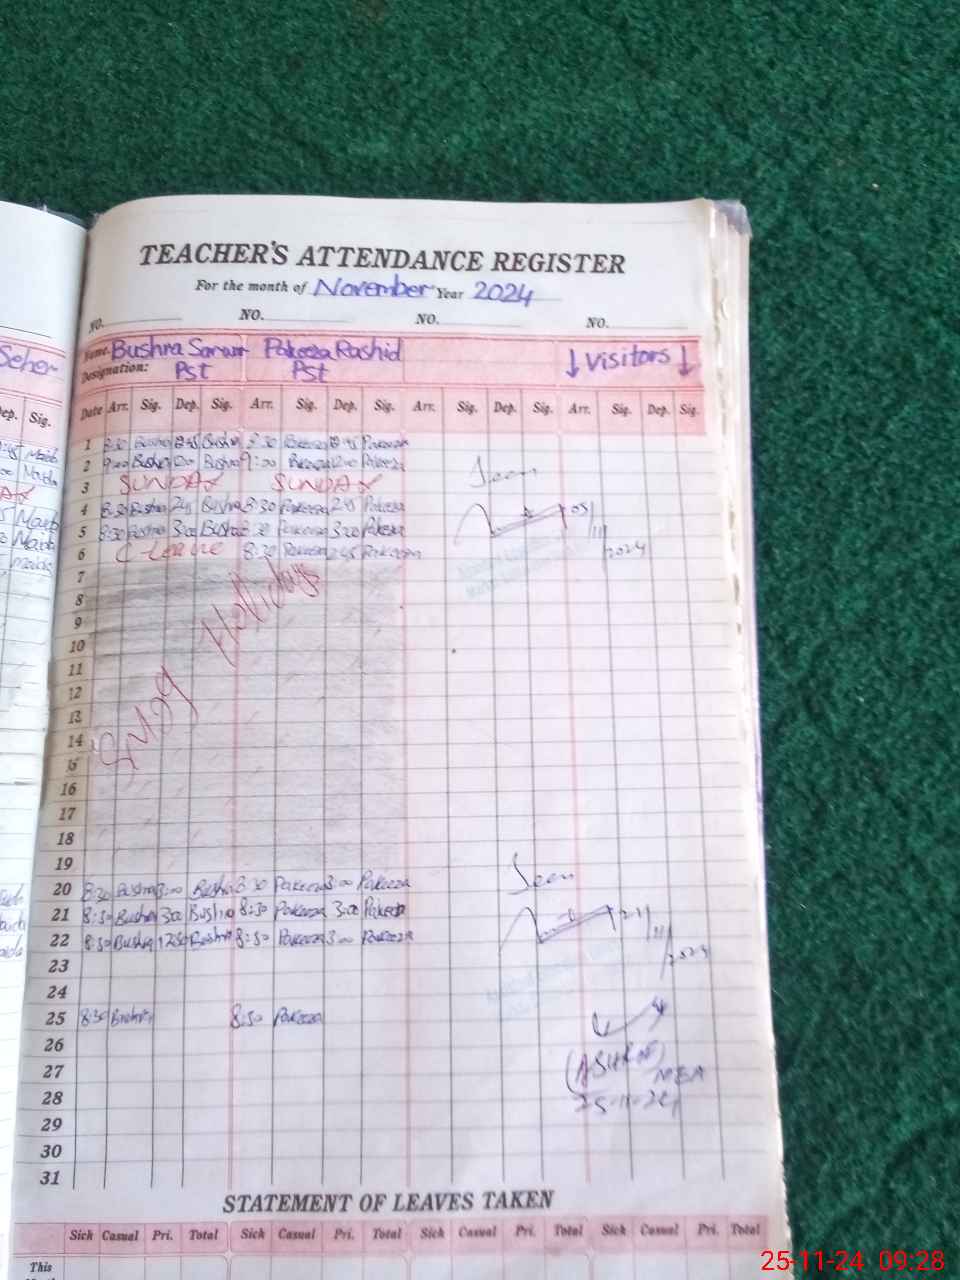 TEACHER'S ATTENDANCE REGISTER
For the month of November Year 2024
NO. NO. NO. NO.
Seher
Name. Bushra Pakeeza Rashid ↓ Visitors ↓
Designation: Pst Pst
Dep. Sig.
Date Arr. Sig. Dep. Sig. Arr. Sig. Dep. Sig. Arr. Sig. Dep. Sig. Arr. Sig. Dep. Sig.
1 8:30 Bushra Bushra 8:30 Pakeeza Pakeeza
2 9:00 Bushra 12:00 Bushra 9:00 Pakeeza 12:00 Pakeeza
Seen
3 SUNDAY SUNDAY
4 8:30 Bushra 2:45 Bushra 8:30 Pakeeza 2:45 Pakeeza
05/11/2024
5 8:30 Bushra 3:00 Bushra 8:30 Pakeeza 3:00 Pakeeza
6 C-Leave 8:30 Pakeeza 2:45 Pakeeza
7
Smog Holidays
8
9
10
11
12
13
14
15
16
17
18
19
Seen
20 8:30 Bushra 3:00 Bushra 8:30 Pakeeza 3:00 Pakeeza
21 8:30 Bushra 3:00 Bushra 8:30 Pakeeza 3:00 Pakeeza
22 8:30 Bushra 12:30 Bushra 8:30 Pakeeza 3:00 Pakeeza
23
24
25 8:30 Bushra 8:30 Pakeeza
26
27
(ASHRAF) MEA
28
25-11-24
29
30
31
STATEMENT OF LEAVES TAKEN
Sick Casual Pri. Total Sick Casual Pri. Total Sick Casual Pri. Total Sick Casual Pri. Total
This
25-11-24 09:28